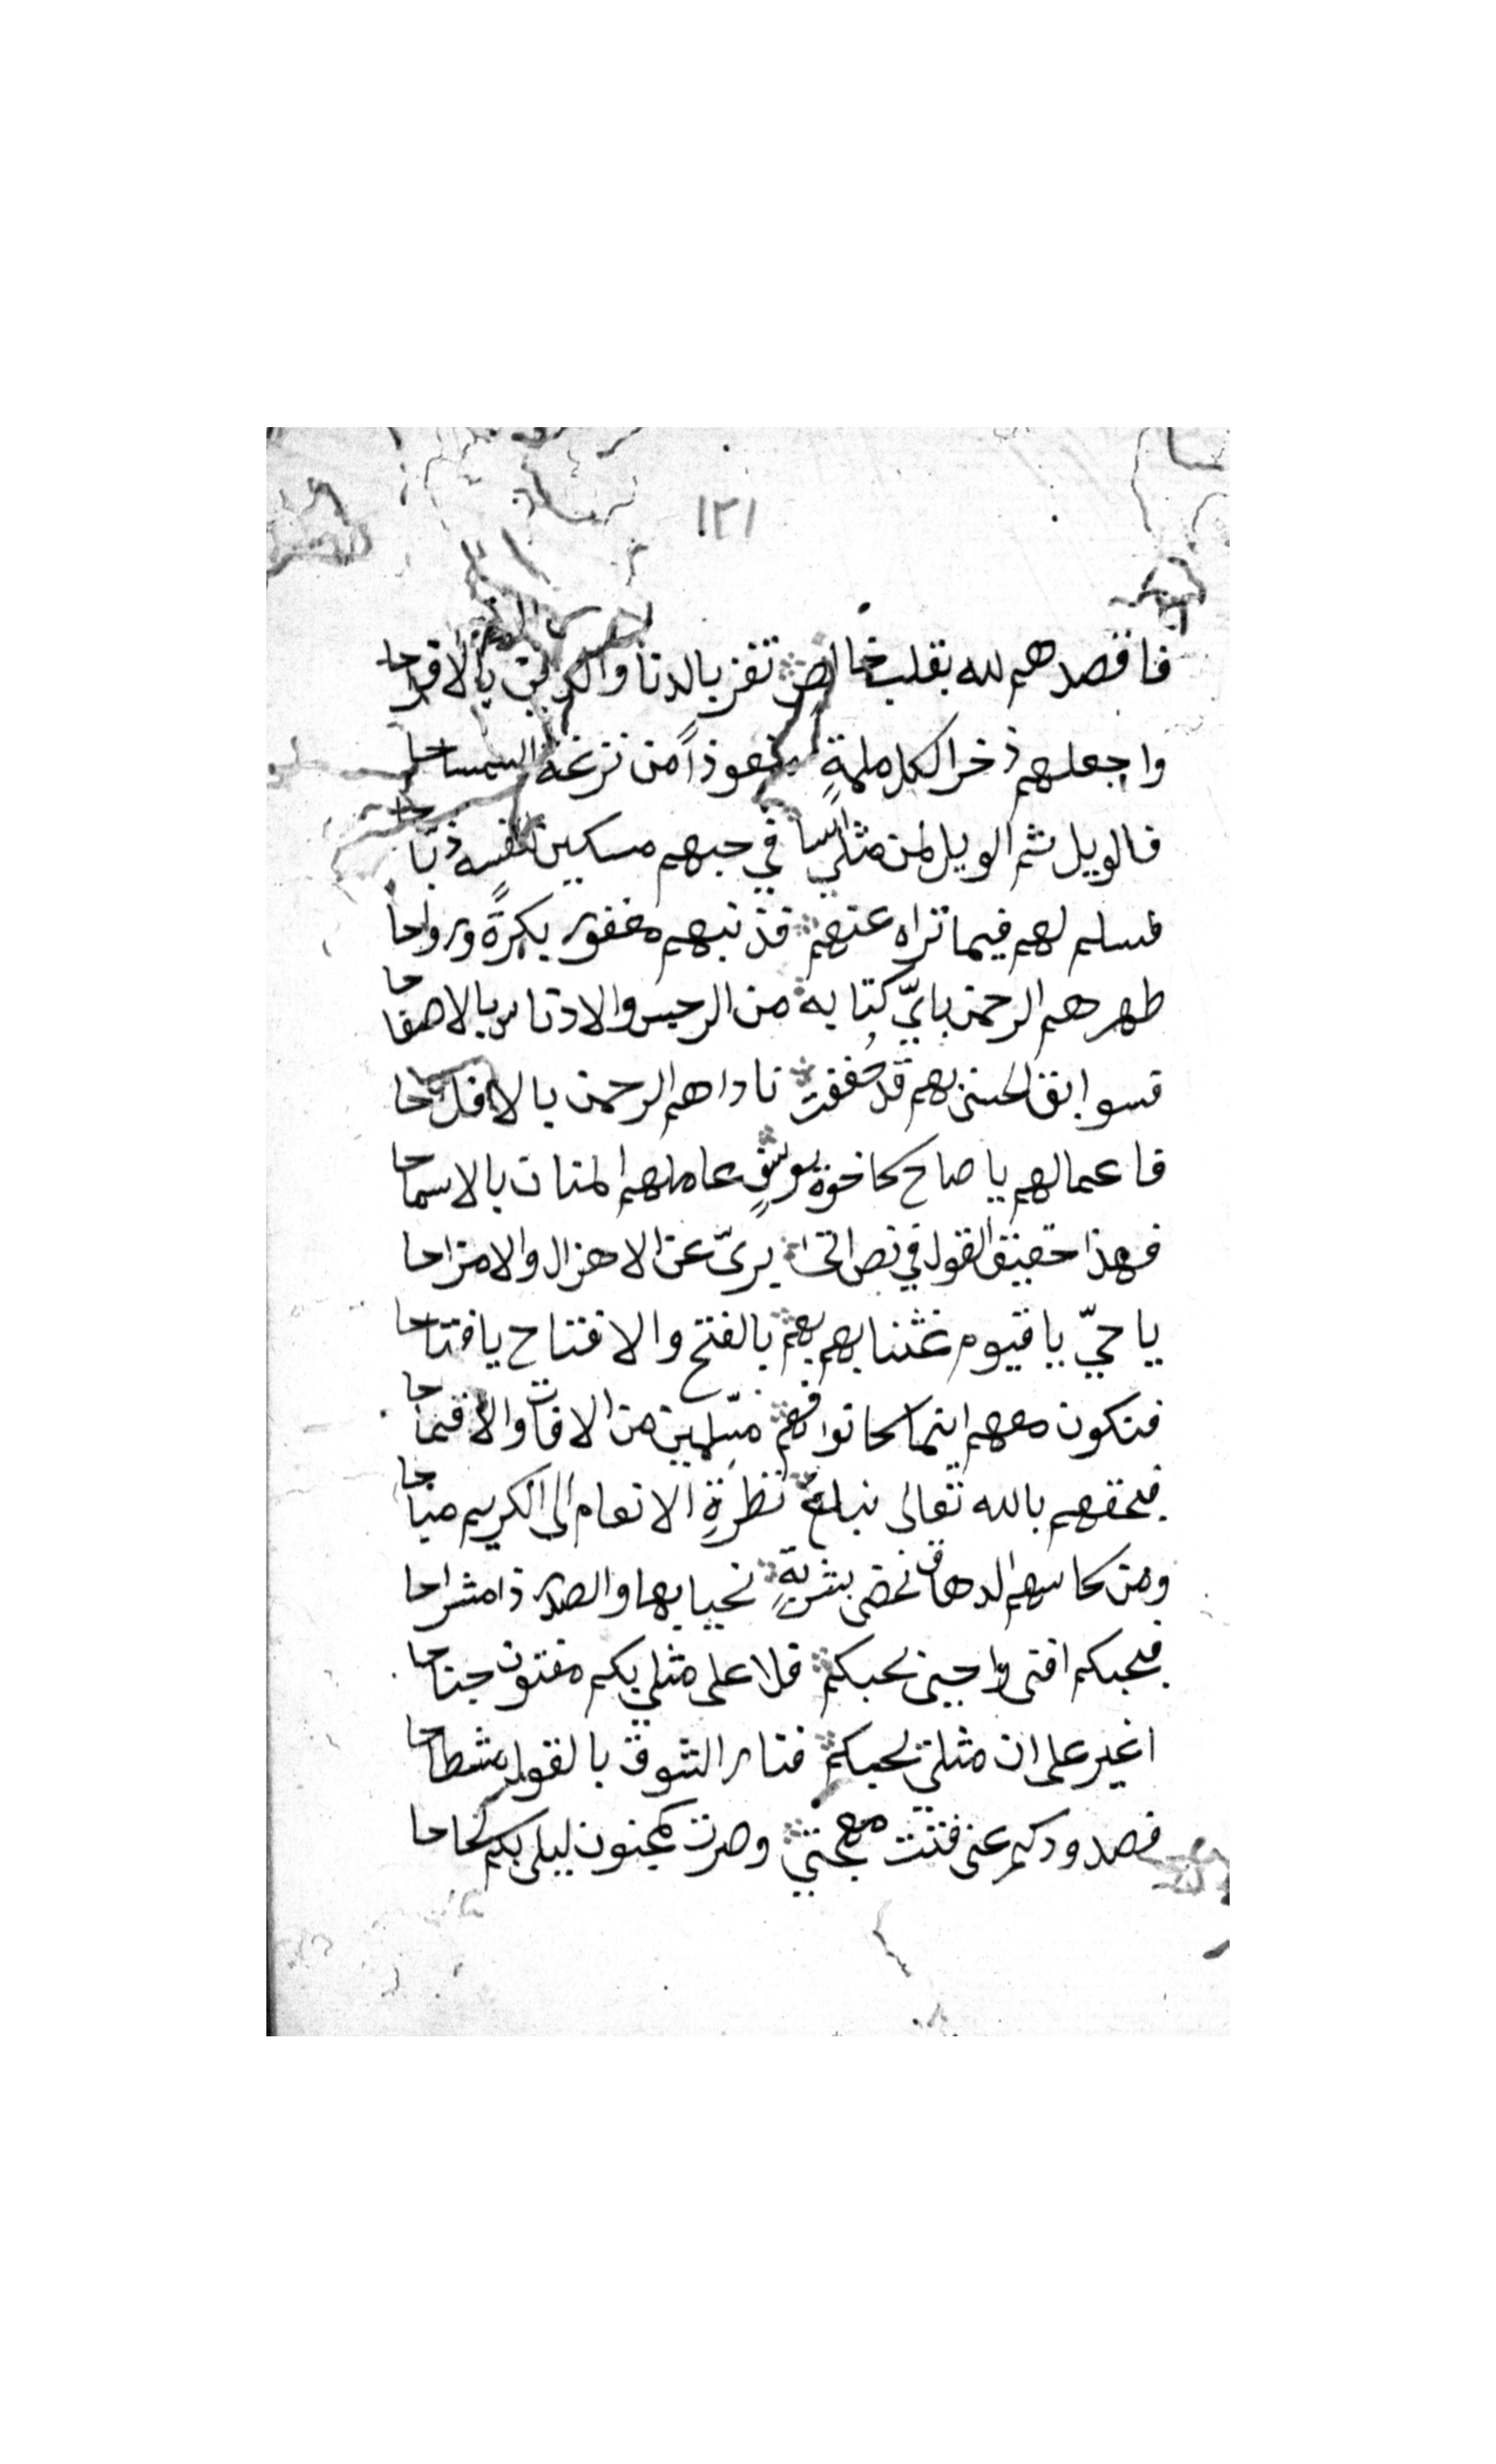 ١٢١
فاقصدهم لله بقلب خالص تفز بالدنا والدين بالافراحا
واجعلهم ذخرا لكل ملمةٍ نعوذاً من نزغة
فالويل ثم الويل لمن مثلي اسا في حبهم مسكين لنفسه ذباحا
فسلم لهم فيما تراه عنهم فذنبهم مغفور بكرة ورواحا
طهرهم الرحمن بايّ كتابه من الرجس والادناس بالاصفاحا
فسوابق الحسنى بهم قد حففت ناداهم الرحمن بالافلاحا
فاعمالهم يا صاح كاخوة يوسفٍ عاملهم المنان بالاسماحا
فهذا حقيق القول في نص اتى يرىّ عن الاهزال والامزاحا
يا حيّ يا قيوم غثنا بهم بهم بالفتح والافتاح يا فتاحا
فنكون معهم اينما كانوا فهم مسلمين من الافات والاقماحا
فبحقهم بالله تعالى نظرةِ الانعام الى الكريم مباحا
ومن كاسهم الدهاق نحضى بشربةٍ نحيا بها والصدر ذا مشراحا
فحبكم افنى واجبنى لحبكم فلا على مثلي بكم مفتون جناحا
اغير على ان مثلي لحبكم فنار الشوق بالقول شطاحا
فصدودكم عنى فتتت مهجتي وصرت كمجنون ليلى بكم